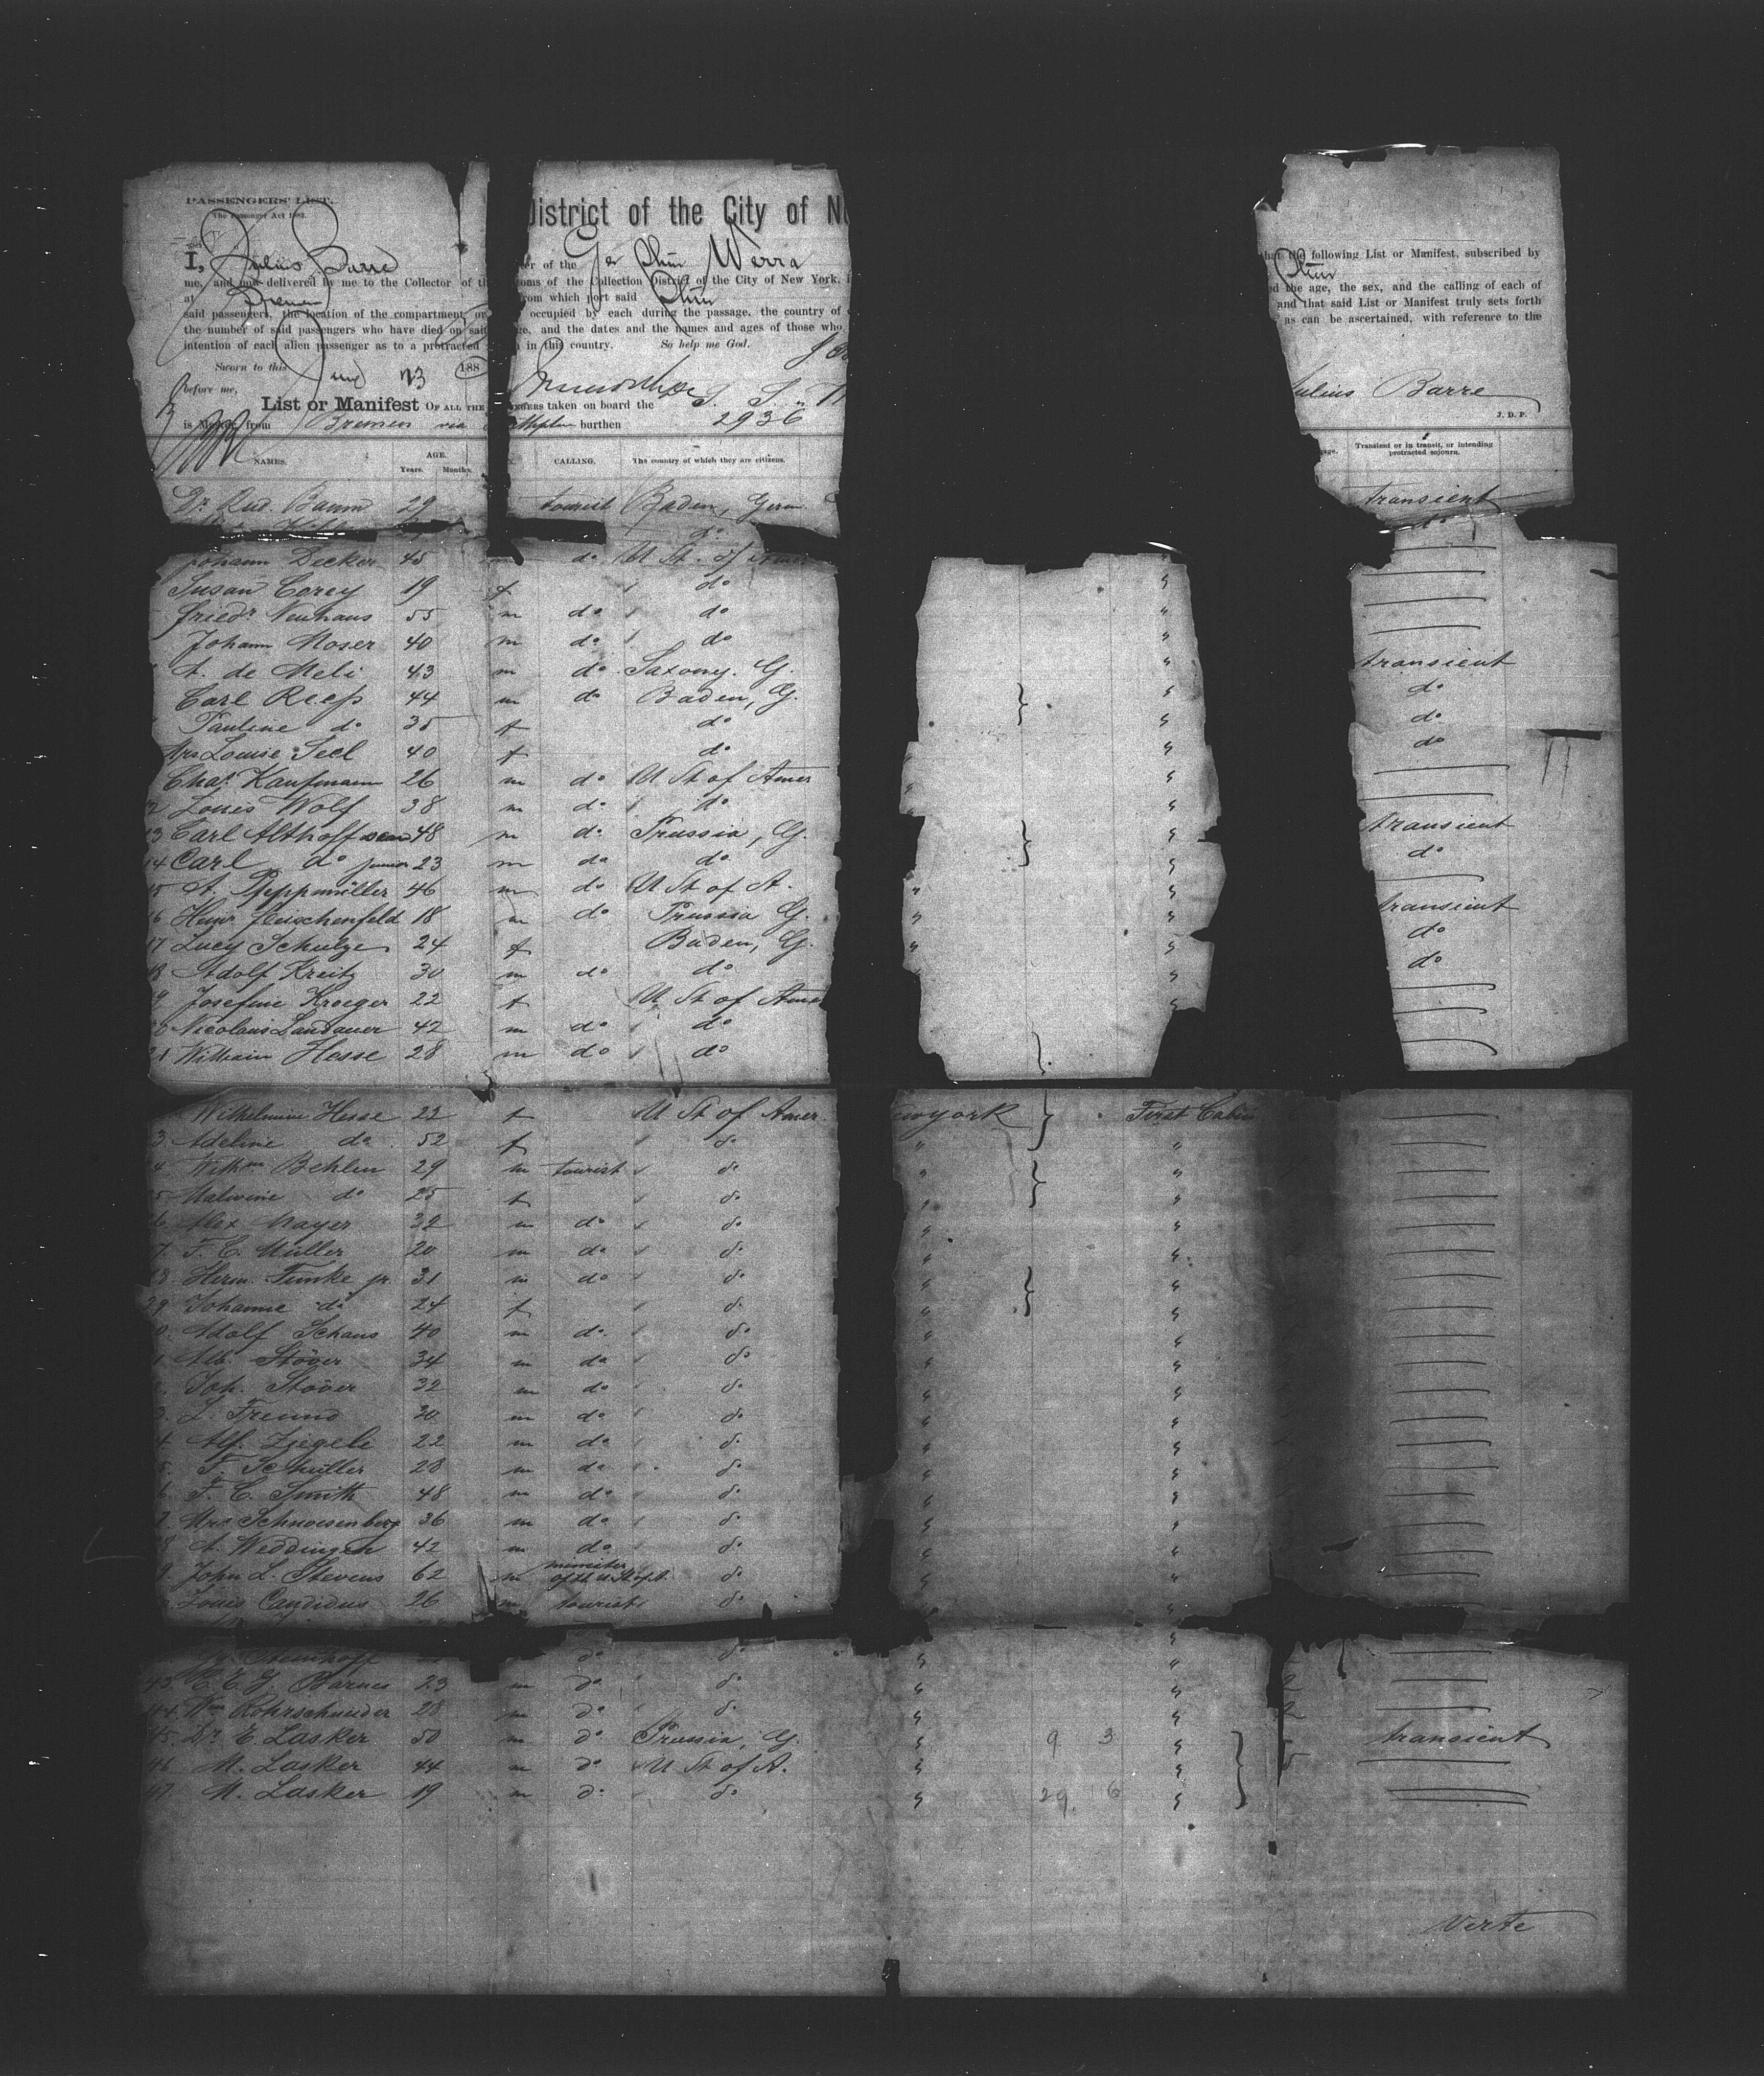 PASSENGERS' LIST.
The Passenger Act 1882.
District of the City of N
I, Julius Barre er of the Ger Stmr Werra that the following List or Manifest, subscribed by
me, and now delivered by me to the Collector of th oms of the Collection District of the City of New York, i
at Bremen from which port said Stmr ed the age, the sex, and the calling of each of
said passengers, the location of the compartment or occupied by each during the passage, the country of and that said List or Manifest truly sets forth
the number of said passengers who have died on said ge, and the dates and the names and ages of those who as can be ascertained, with reference to the
intention of each alien passenger as to a protracted in this country. So help me God.
Sworn to this June 23 188
before me, Julius Barre
J. D. P.
List or Manifest OF ALL THE NGERS taken on board the S. S.
is Master, from Bremen via burthen 2936
NAMES. AGE. Years. Months. X. CALLING. The country of which they are citizens. age. Transient or in transit, or intending protracted sojourn.
Dr Rud. Baum 29 tourist Baden, Germ. transient
do do
Johann Decker 45 do U St. of Amer
Susan Corey 19 f do "
Friedr Neuhaus 55 m do do "
Johann Moser 40 m do do "
A. de Meli 43 m do Saxony. G. " transient
Carl Reep 44 m do Baden, G. " do
Pauline do 35 f do " do
Mrs Louise Seel 40 f do " do
Chas. Kaufmann 26 m do U St of Amer "
12 Louis Wolf 38 m do do "
13 Carl Althoff 48 m do Prussia, G. " transient
14 Carl do junior 23 m do do " do
15 A. Peppmüller 46 m do U St of A. " "
16 Heinr. Leuschenfeld 18 m do Prussia G. " " transient
17 Lucy Schulze 24 f Baden, G. " " do
18 Adolf Kreitz 30 m do do " do
19 Josefine Kroeger 22 f U St of Amer "
20 Nicolaus Landauer 42 m do do
21 William Hesse 28 m do do
Wilhelmine Hesse 22 f U St of Amer. ewyork First Cabin
3 Adeline do 52 f do " "
4 Wilhm Behlen 29 m tourist do " "
25 Malwine do 25 f do " "
6 Alex Mayer 32 m do do " "
7. F. C. Müller 20 m do do " "
28. Herm. Funke jr. 31 m do do " "
29 Johanne do 24 f do " "
0. Adolf Schaus 40 m do do " "
1 Alb. Stöver 34 m do do " "
Joh. Stöver 32 m do do " "
3. L. Freund 30 m do do " "
4. Alf. Ziegele 22 m do do " "
5. F. Schüller 28 m do do " "
6 F. C. Smith 48 m do do " "
7. Mrs Schnoesenberg 36 m do do " "
8 A. Weddingen 42 m do do " "
9. John L. Stevens 62 m minister of the U. St of A. do " "
Louis Candidus 26 m tourist do "
do do " "
43 C. E. G. Barnes 23 m do do " "
44 Wm Rohrschneider 28 m do do " "
45. Dr E. Lasker 50 m do Prussia, G. " 9 3 " transient
46 M. Lasker 44 m do U St of A. " "
47. M. Lasker 19 m do do " 29. 6 "
Verte